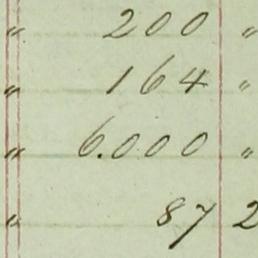 " 200 "
" 164 "
" 6.000 "
" 87 2